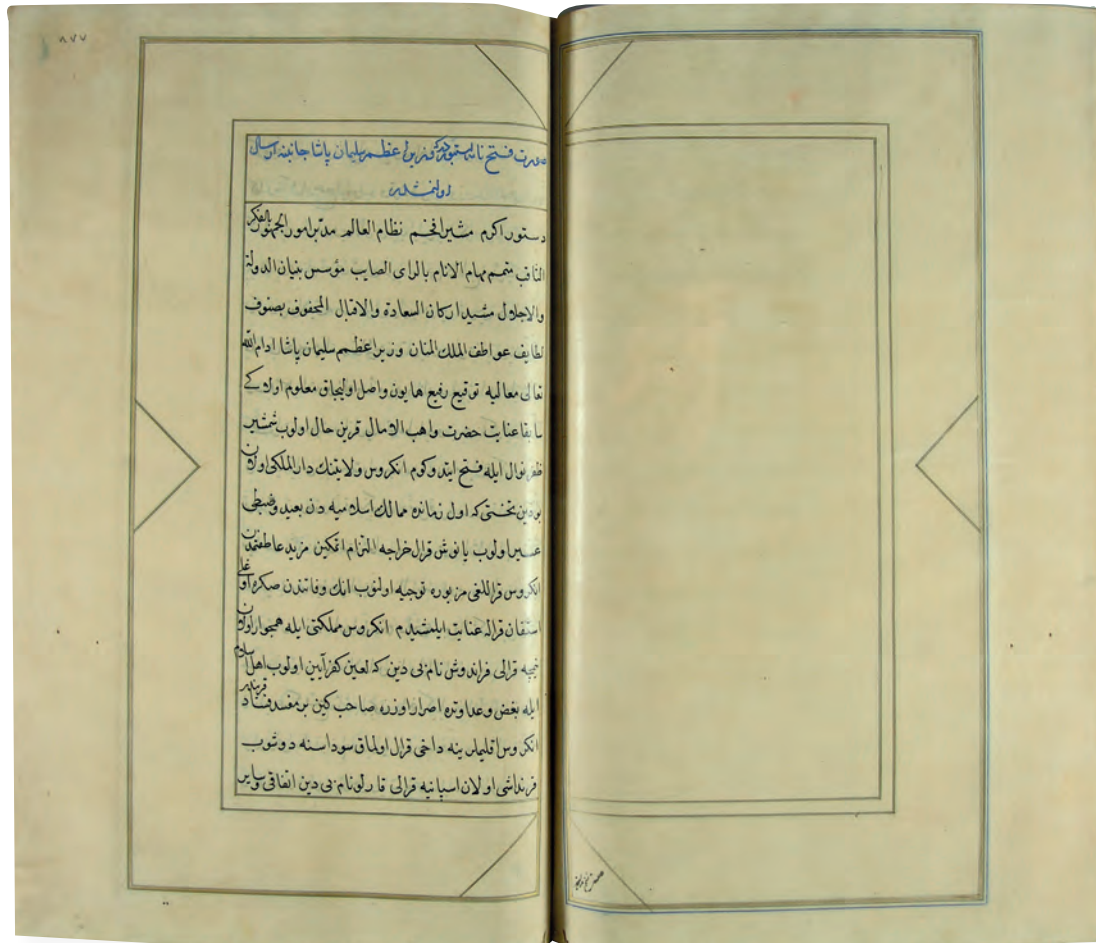 صورت فتح نامه همایوندر که وزیر اعظم سلیمان پاشا جانبنه ارسال
اولنمشدر
دستور اکرم مشیر افخم نظام العالم مدبر امور الجمهور بالفکر
الثاقب متمم مهام الانام بالرای الصایب مؤسس بنیان الدولة
والاجلال مشید ارکان السعادة والاقبال المحفوف بصنوف
لطایف عواطف الملك المنان وزیر اعظم سلیمان پاشا ادام الله
تعالی معالیه توقیع رفیع همایون واصل اولیجاق معلوم اولا که
سابقا عنایت حضرت واهب الامال قرین حال اولوب شمشیر
ظفر نوال ایله فتح ایتدوکوم انکروس ولایتنك دار الملکی اولان
بودین تختی که اول زمانده ممالك اسلامیه دن بعید وضبطی
عسیر اولوب یانوش قرال خراجه التزام اتمکین مزید عاطفتمدن
انکروس قراللغی مزبوره توجیه اولنوب انك وفاتندن صکره اوغلی
استفان قراله عنایت ایلمشیدم انکروس مملکتی ایله همجوار اولان
نیمچه قرالی فراندوش نام بی دین که لعین کفر آیین اولوب اهل اسلام
ایله بغض وعداوتده اصرار اوزره صاحب کین بر مفسد فتاد
انکروس اقلیملرینه داخی قرال اولماق سوداسنه دوشوب
قرنداشی اولان اسپانیه قرالی قارلو نام بی دین اتفاقی وسایر
٨٧٧